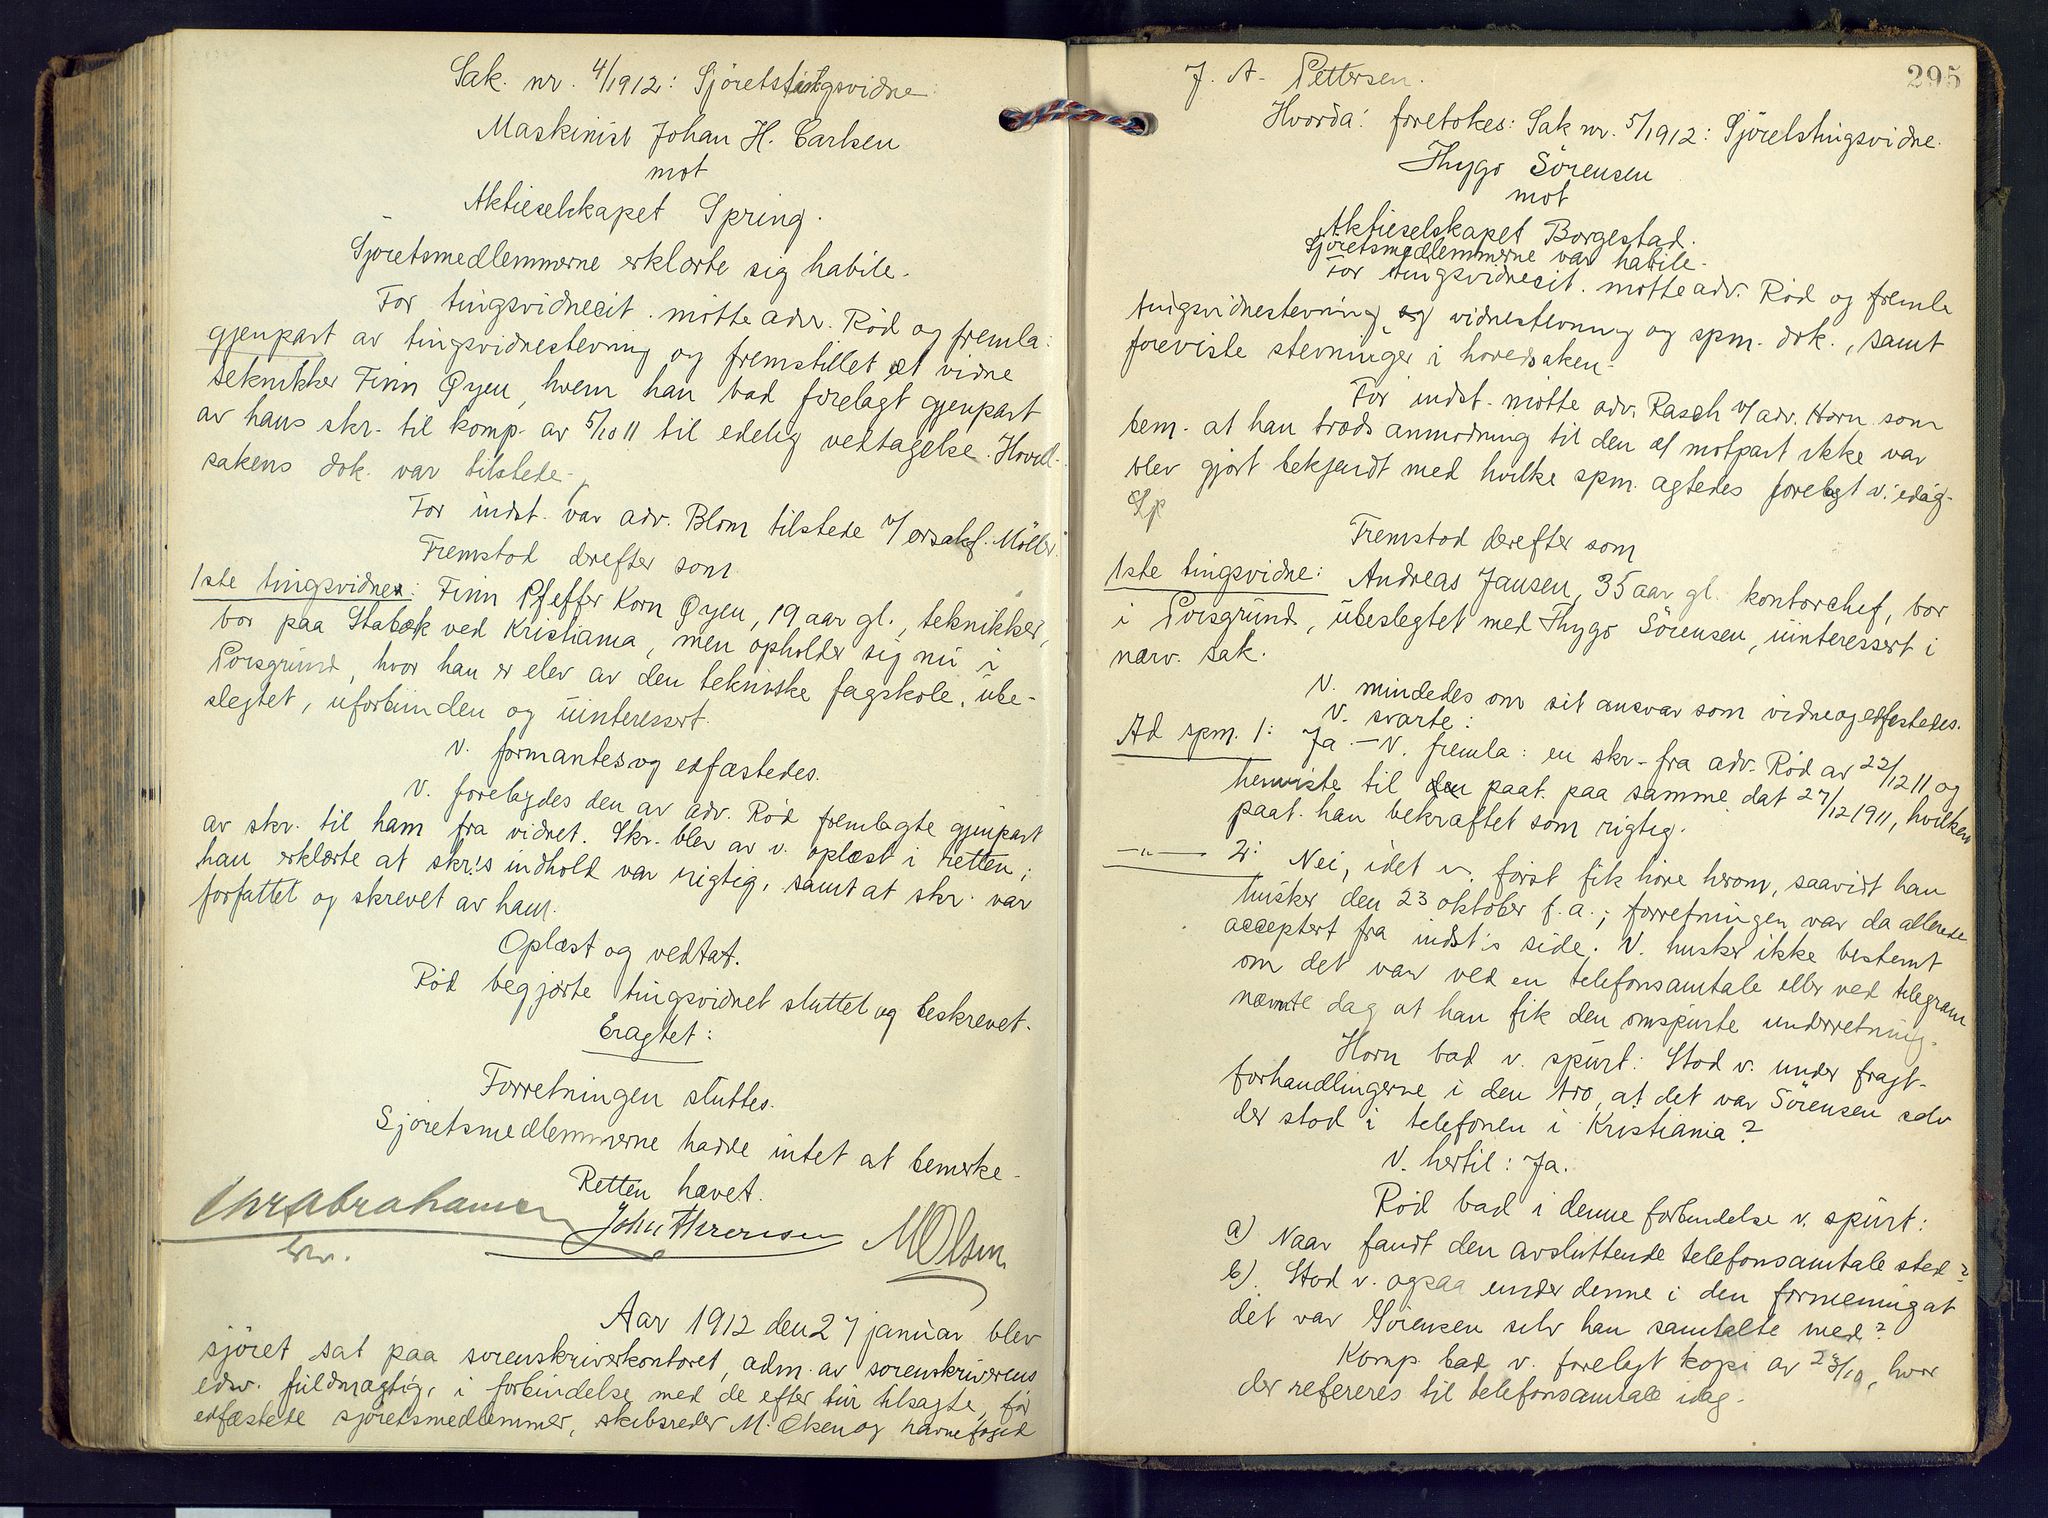 Sak. nr. 4/1912: Sjöretstingsvidne:
Maskinist Johan H. Carlsen
mot
Aktieselskapet Spring.
Sjöretsmedlemmerne erklærte sig habile.
For tingsvidnecit. mötte adv. Röd og fremla:
gjenpart av tingsvidnestevning og fremstillet et vidne
tekniker Finn Öyen, hvem han bad forelagt gjenpart
av hans skr. til komp. av 5/10 11 til edelig vedtagelse. Hoved-
sakens dok. var tilstede.
For indst. var adv. Blom tilstede v/ ersakf. Möller.
Fremstod derefter som
1ste tingsvidne: Finn Pfeffer Korn Öyen, 19 aar gl., tekniker,
bor paa Stabæk ved Kristiania, men opholder sig nu i
Porsgrund, hvor han er elev av den tekniske fagskole, ube-
slegtet, uforbunden og uinteressert.
V. formantes og edfæstedes.
V. forelagdes den av adv. Röd fremlagte gjenpart
av skr. til ham fra vidnet. Skr. blev av v. oplæst i retten;
han erklærte at skr.'s indhold var rigtig, samt at skr. var
forfattet og skrevet av ham.
Oplæst og vedtat.
Röd begjærte tingsvidnet sluttet og beskrevet.
Eragtet:
Forretningen sluttes.
Sjöretsmedlemmerne hadde intet at bemerke.
Retten hævet.
Chr Abrahamsen John Thrensen MOlsen
Aar 1912 den 27 januar blev
sjöret sat paa sorenskriverkontoret, adm. av sorenskriverens
edsv. fuldmægtig, i forbindelse med de efter tur tilsagte, för
edfæstede sjöretsmedlemmer, skibsreder M. Olsen og havnefoged
295
J. A. Pettersen.
Hvorda: foretokes: Sak nr. 5/1912: Sjöretstingsvidne.
Thygo Sörensen
mot
Aktieselskapet Borgestad.
Sjöretsmedlemmerne var habile.
For tingsvidnecit. mötte adv. Röd og fremla
tingsvidnestevning og vidnestevning og spm. dok., samt
foreviste stevninger i hovedsaken.
For indst. mötte adv. Rasch v/ adv. Horn som
bem. at han trods anmodning til den af motpart ikke var
blev gjort bekjendt med hvilke spm. agtedes forelagt v. idag.
Fremstod derefter som
1ste tingsvidne: Andreas Jansen, 35 aar gl. kontorchef, bor
i Porsgrund, ubeslegtet med Thygo Sörensen, uinteressert i
nærv. sak.
V. mindedes om sit ansvar som vidne og edfestedes.
V. svarte:
Ad spm. 1: Ja. – V. fremla: en skr. fra adv. Röd av 22/12 11 og
henviste til den paat. paa samme dat 27/12 1911, hvilken
paat. han bekræftet som rigtig.
—"— 2: Nei, idet v. först fik höre herom, saavidt han
husker den 23 oktober f. a.; forretningen var da allerede
acceptert fra indst's side. V. husker ikke bestemt
om det var ved en telefonsamtale eller ved telegram
nævnte dag at han fik den omspurte underretning.
Horn bad v. spurt: Stod v. under fragt-
forhandlingerne i den tro, at det var Sörensen selv
der stod i telefonen i Kristiania?
V. hertil: Ja.
Röd bad i denne forbindelse v. spurt:
a) Naar fandt den avsluttende telefonsamtale sted?
b). Stod v. ogsaa under denne i den formening at
det var Sörensen selv han samtalte med?
Komp. bad v. forelagt kopi av 23/10, hvor
der refereres til telefonsamtale idag.